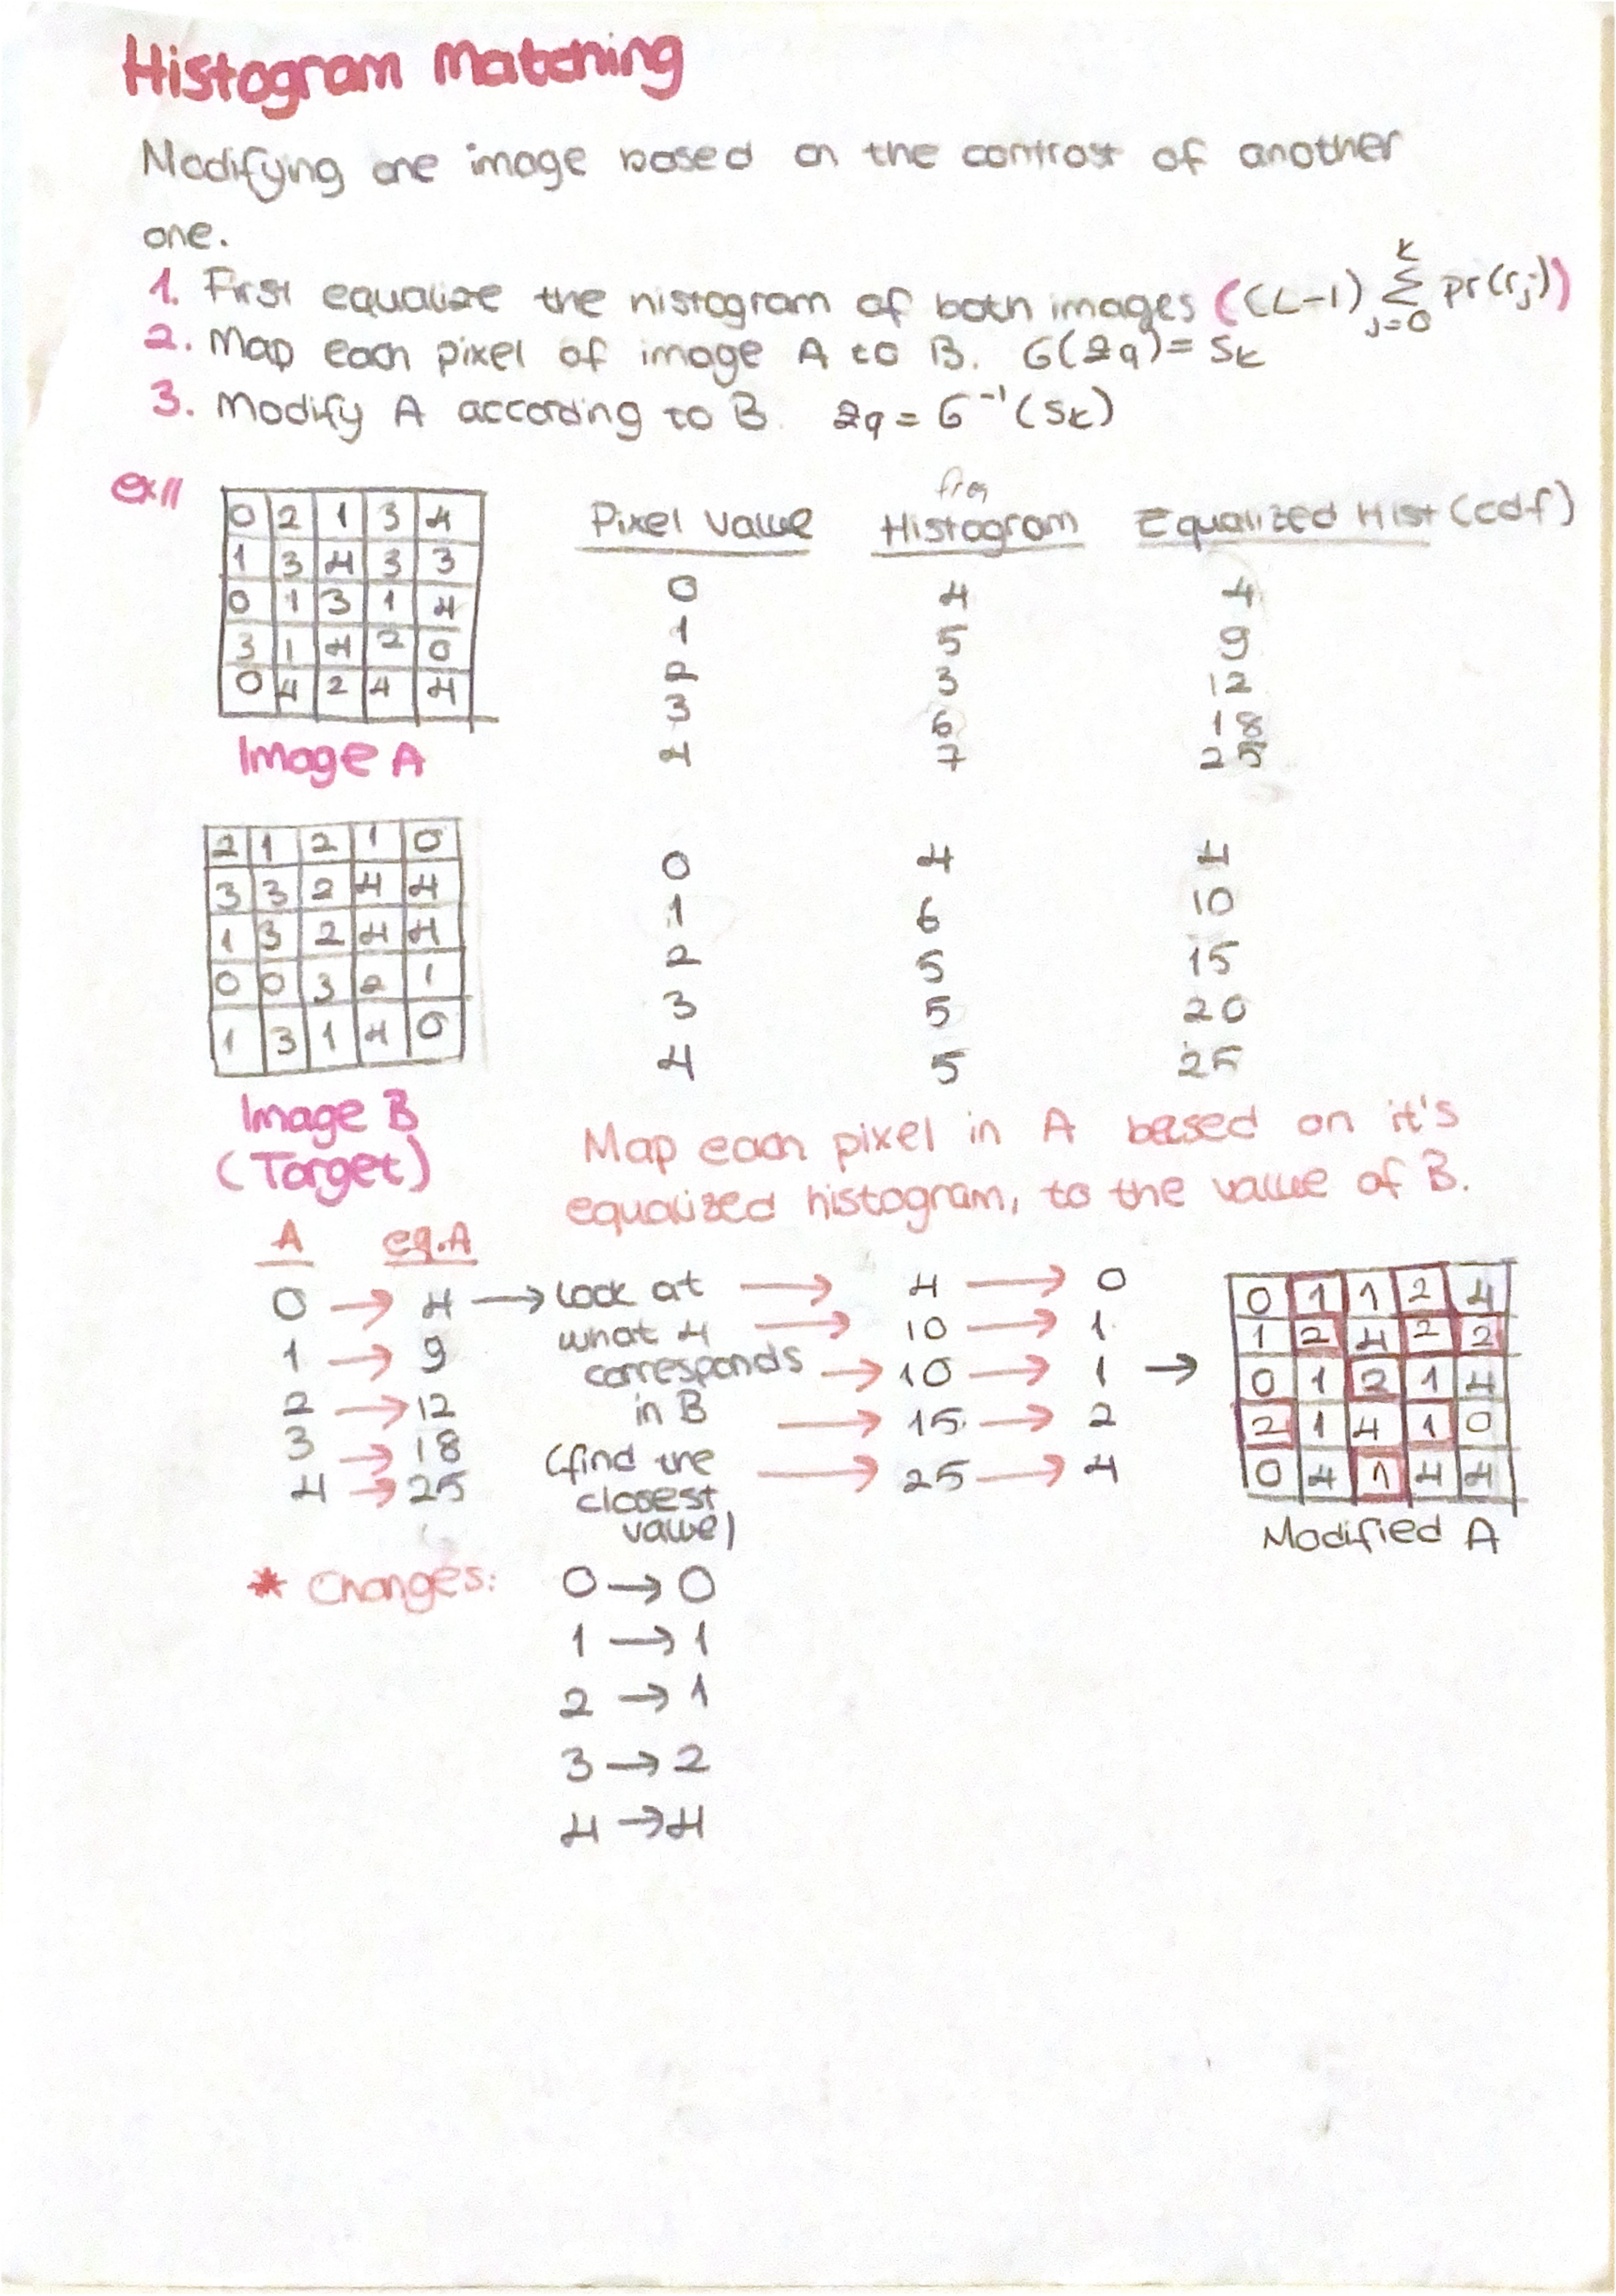 Histogram Matching
Modifying one image based on the contrast of another
one.
1. First equalize the histogram of both images ((L-1) k Σ j=0 pr(rj))
2. Map each pixel of image A to B. G(zq) = sk
3. Modify A according to B. zq = G⁻¹(sk)
ex//
0 2 1 3 4
1 3 4 3 3
0 1 3 1 4
3 1 4 2 0
0 4 2 4 4
Image A
frq
Pixel value Histogram Equalized Hist (cdf)
0 4 4
1 5 9
2 3 12
3 6 18
4 7 25
2 1 2 1 0
3 3 2 4 4
1 3 2 4 4
0 0 3 2 1
1 3 1 4 0
Image B
(Target)
0 4 4
1 6 10
2 5 15
3 5 20
4 5 25
Map each pixel in A based on it's
equalized histogram, to the value of B.
A eq.A
0 → 4 → look at → 4 → 0
1 → 9 what 4 → 10 → 1
2 → 12 corresponds → 10 → 1 →
3 → 18 in B → 15 → 2
4 → 25 (find the → 25 → 4
closest
value)
0 1 1 2 4
1 2 4 2 2
0 1 2 1 4
2 1 4 1 0
0 4 1 4 4
Modified A
* Changes: 0 → 0
1 → 1
2 → 1
3 → 2
4 → 4